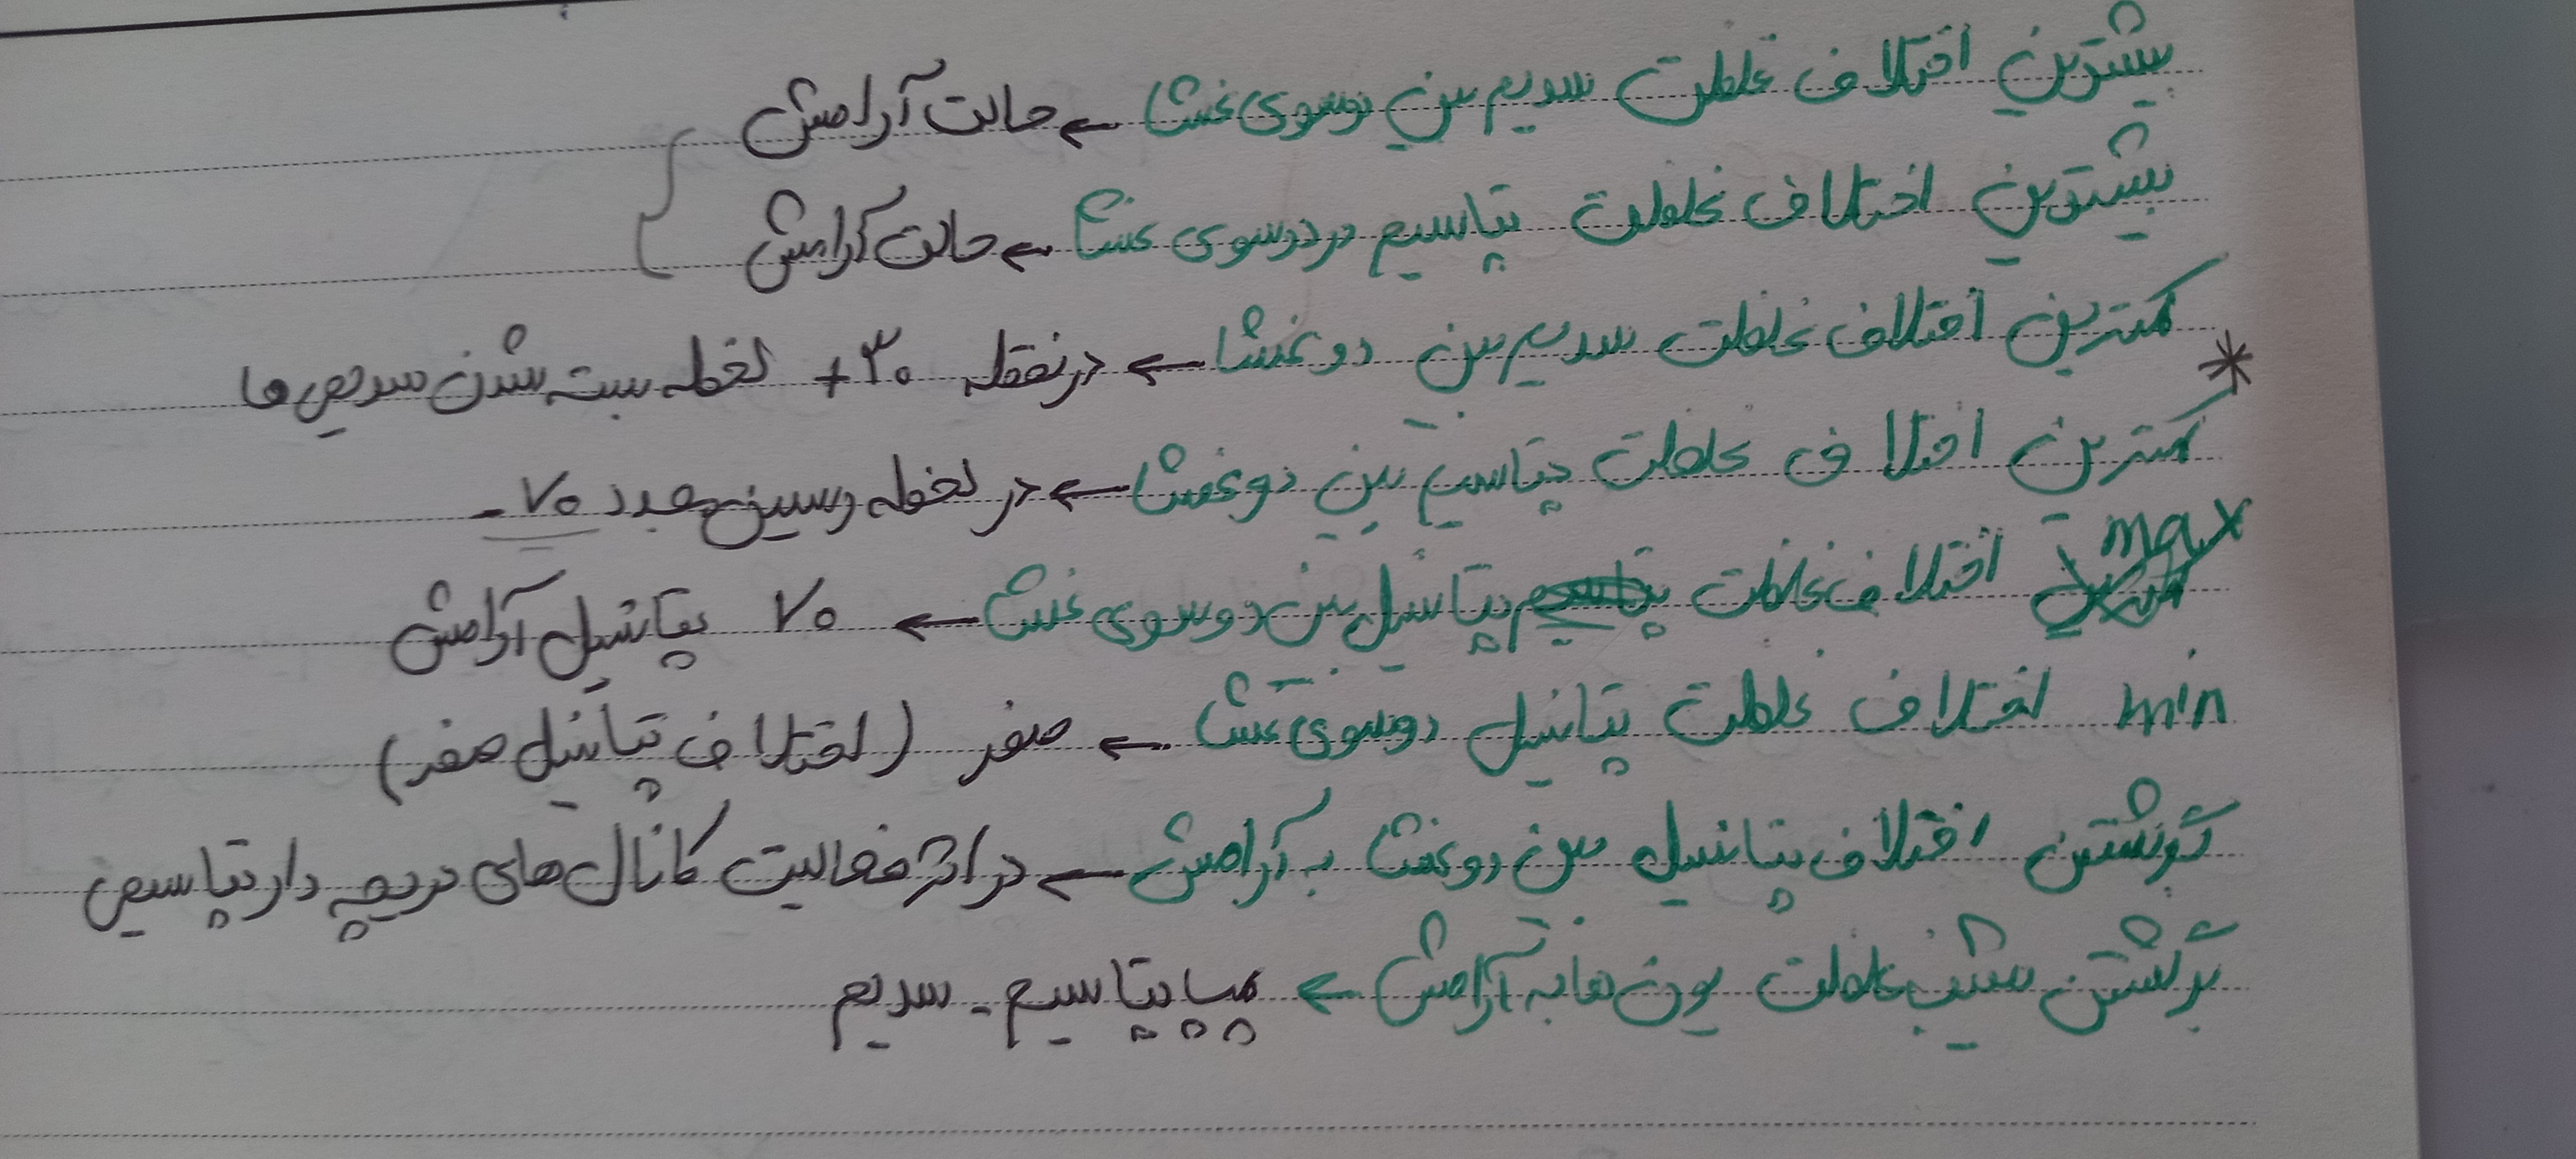 بیشترین اختلاف غلظت سدیم بین دوسوی غشا ← حالت آرامش
بیشترین اختلاف غلظت پتاسیم در دوسوی غشا ← حالت آرامش
کمترین اختلاف غلظت سدیم بین دو غشا ← در نقطه ۳۰+ لحظه بسته شدن سدیمی ها
* کمترین اختلاف غلظت پتاسیم بین دو غشا ← در لحظه رسیدن به عدد ۷۰-
max اختلاف غلظت پتانسیل بین دو سوی غشا ← ۷۰ پتانسیل آرامش
min اختلاف غلظت پتانسیل دوسوی غشا ← صفر (اختلاف پتانسیل صفر)
برگشتن اختلاف پتانسیل بین دو غشا به آرامش ← در اثر فعالیت کانال های دریچه دار پتاسیمی
برگشتن شیب غلظت یون ها به آرامش ← پمپ پتاسیم - سدیم